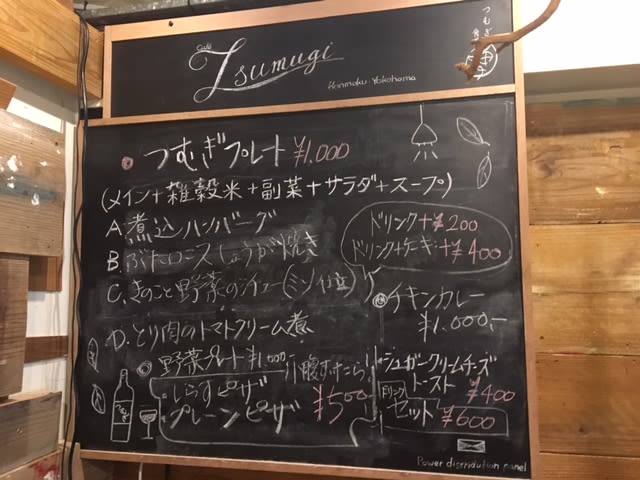 Cafe
Tsumugi
Honmoku・Yokohama
つむぎ
つむぎプレート ¥1.000
(メイン+雑穀米+副菜+サラダ+スープ)
A.煮込ハンバーグ
B.ぶたロースしょうが焼き
C.きのこと野菜のシチュー(ミソ仕立)
D.とり肉のトマトクリーム煮
野菜プレート ¥1.000
ドリンク+¥200
ドリンク+ケーキ+¥400
チキンカレー
¥1.000.-
小腹すいたら!
しらすピザ
プレーンピザ
¥500
シュガークリームチーズ
トースト ¥400
ドリンク
セット ¥600
Power distribution panel